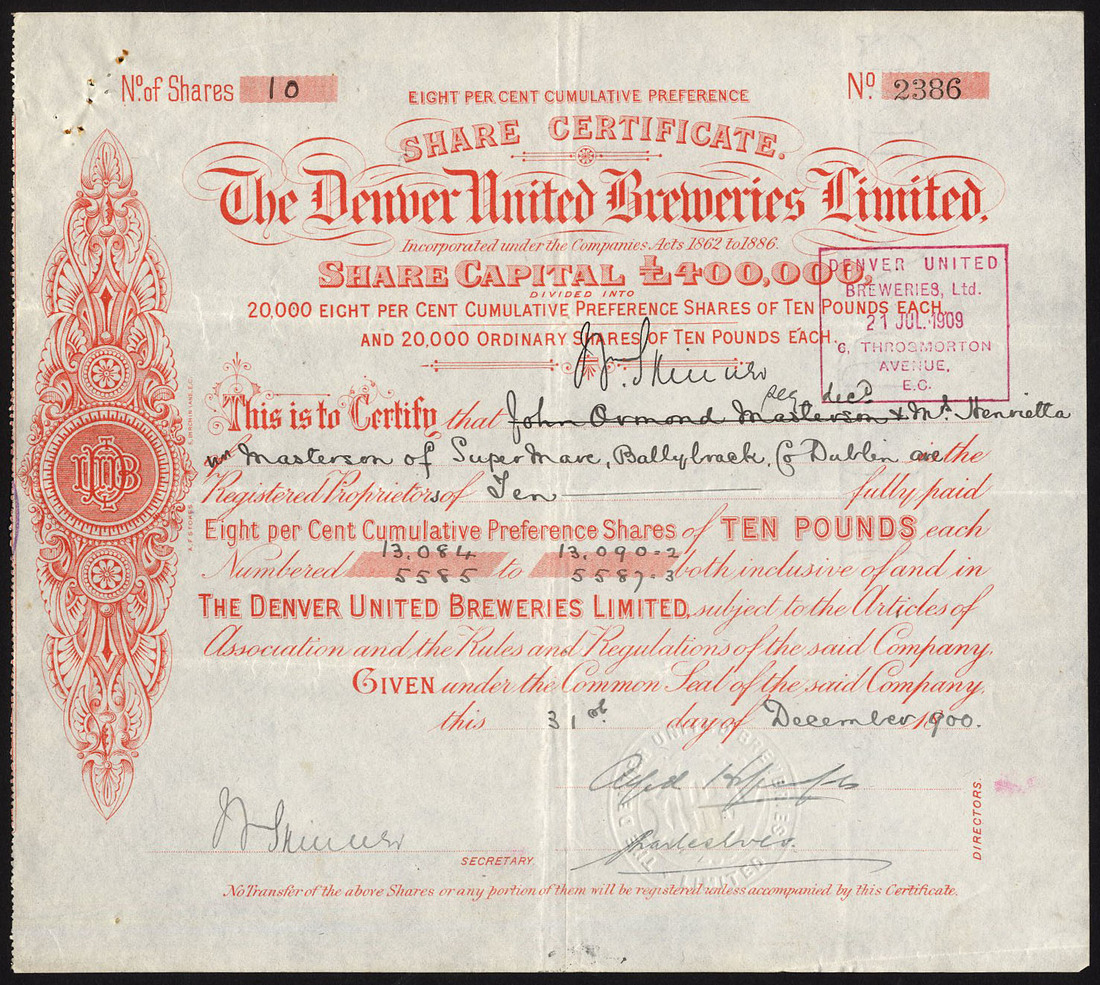 No. of Shares 10
No. 2386
EIGHT PER CENT CUMULATIVE PREFERENCE
SHARE CERTIFICATE.
The Denver United Breweries Limited.
Incorporated under the Companies Acts 1862 to 1886.
SHARE CAPITAL £400,000,
DIVIDED INTO
20,000 EIGHT PER CENT CUMULATIVE PREFERENCE SHARES OF TEN POUNDS EACH,
AND 20,000 ORDINARY SHARES OF TEN POUNDS EACH.
DENVER UNITED
BREWERIES, Ltd.
21 JUL. 1909
6, THROGMORTON
AVENUE,
E.C.
Skinner
decd
This is to Certify that John Ormond Masterson & Mrs. Henrietta
Masterson of Super Mare, Ballybrack, Co Dublin are the
Registered Proprietors of Ten fully paid
Eight per Cent Cumulative Preference Shares of TEN POUNDS each
13,084 13,090=2
Numbered 5585 to 5587=3 both inclusive of and in
THE DENVER UNITED BREWERIES LIMITED, subject to the Articles of
Association and the Rules and Regulations of the said Company.
GIVEN under the Common Seal of the said Company,
this 31st day of December 1900.
UDB
Skinner
SECRETARY.
DIRECTORS.
No Transfer of the above Shares or any portion of them will be registered unless accompanied by this Certificate.